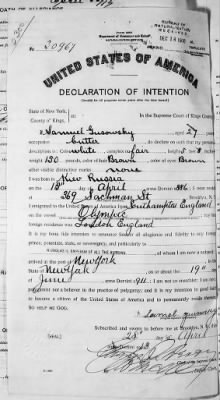 OATH OF ALLEGIANCE
BUREAU OF NATURALIZATION
RECEIVED
DEC 18
No. 30967
UNITED STATES OF AMERICA
DECLARATION OF INTENTION
(Invalid for all purposes seven years after the date hereof)
State of New York,
County of Kings, In the Supreme Court of Kings County
I, Samuel aged 27 years,
occupation cutter, do declare on oath that my personal
description is: Color white, complexion fair, height 5 feet 8 inches,
weight 130 pounds, color of hair Brown, color of eyes Brown
other visible distinctive marks none
I was born in Kiev Russia
on the 15 day of April, anno Domini 1886; I now reside
at 369 St
I emigrated to the United States of America from Southampton England
on the vessel Olympic; my last
foreign residence was London England
It is my bona fide intention to renounce forever all allegiance and fidelity to any foreign
prince, potentate, state, or sovereignty, and particularly to
I arrived at the port of New York, in the
State of New York, on or about the 19 day
of June, anno Domini 1911; I am not an anarchist; I am not a
polygamist nor a believer in the practice of polygamy; and it is my intention in good faith
to become a citizen of the United States of America and to permanently reside therein:
SO HELP ME GOD.
Subscribed and sworn to before me at
[SEAL] 28 day of April